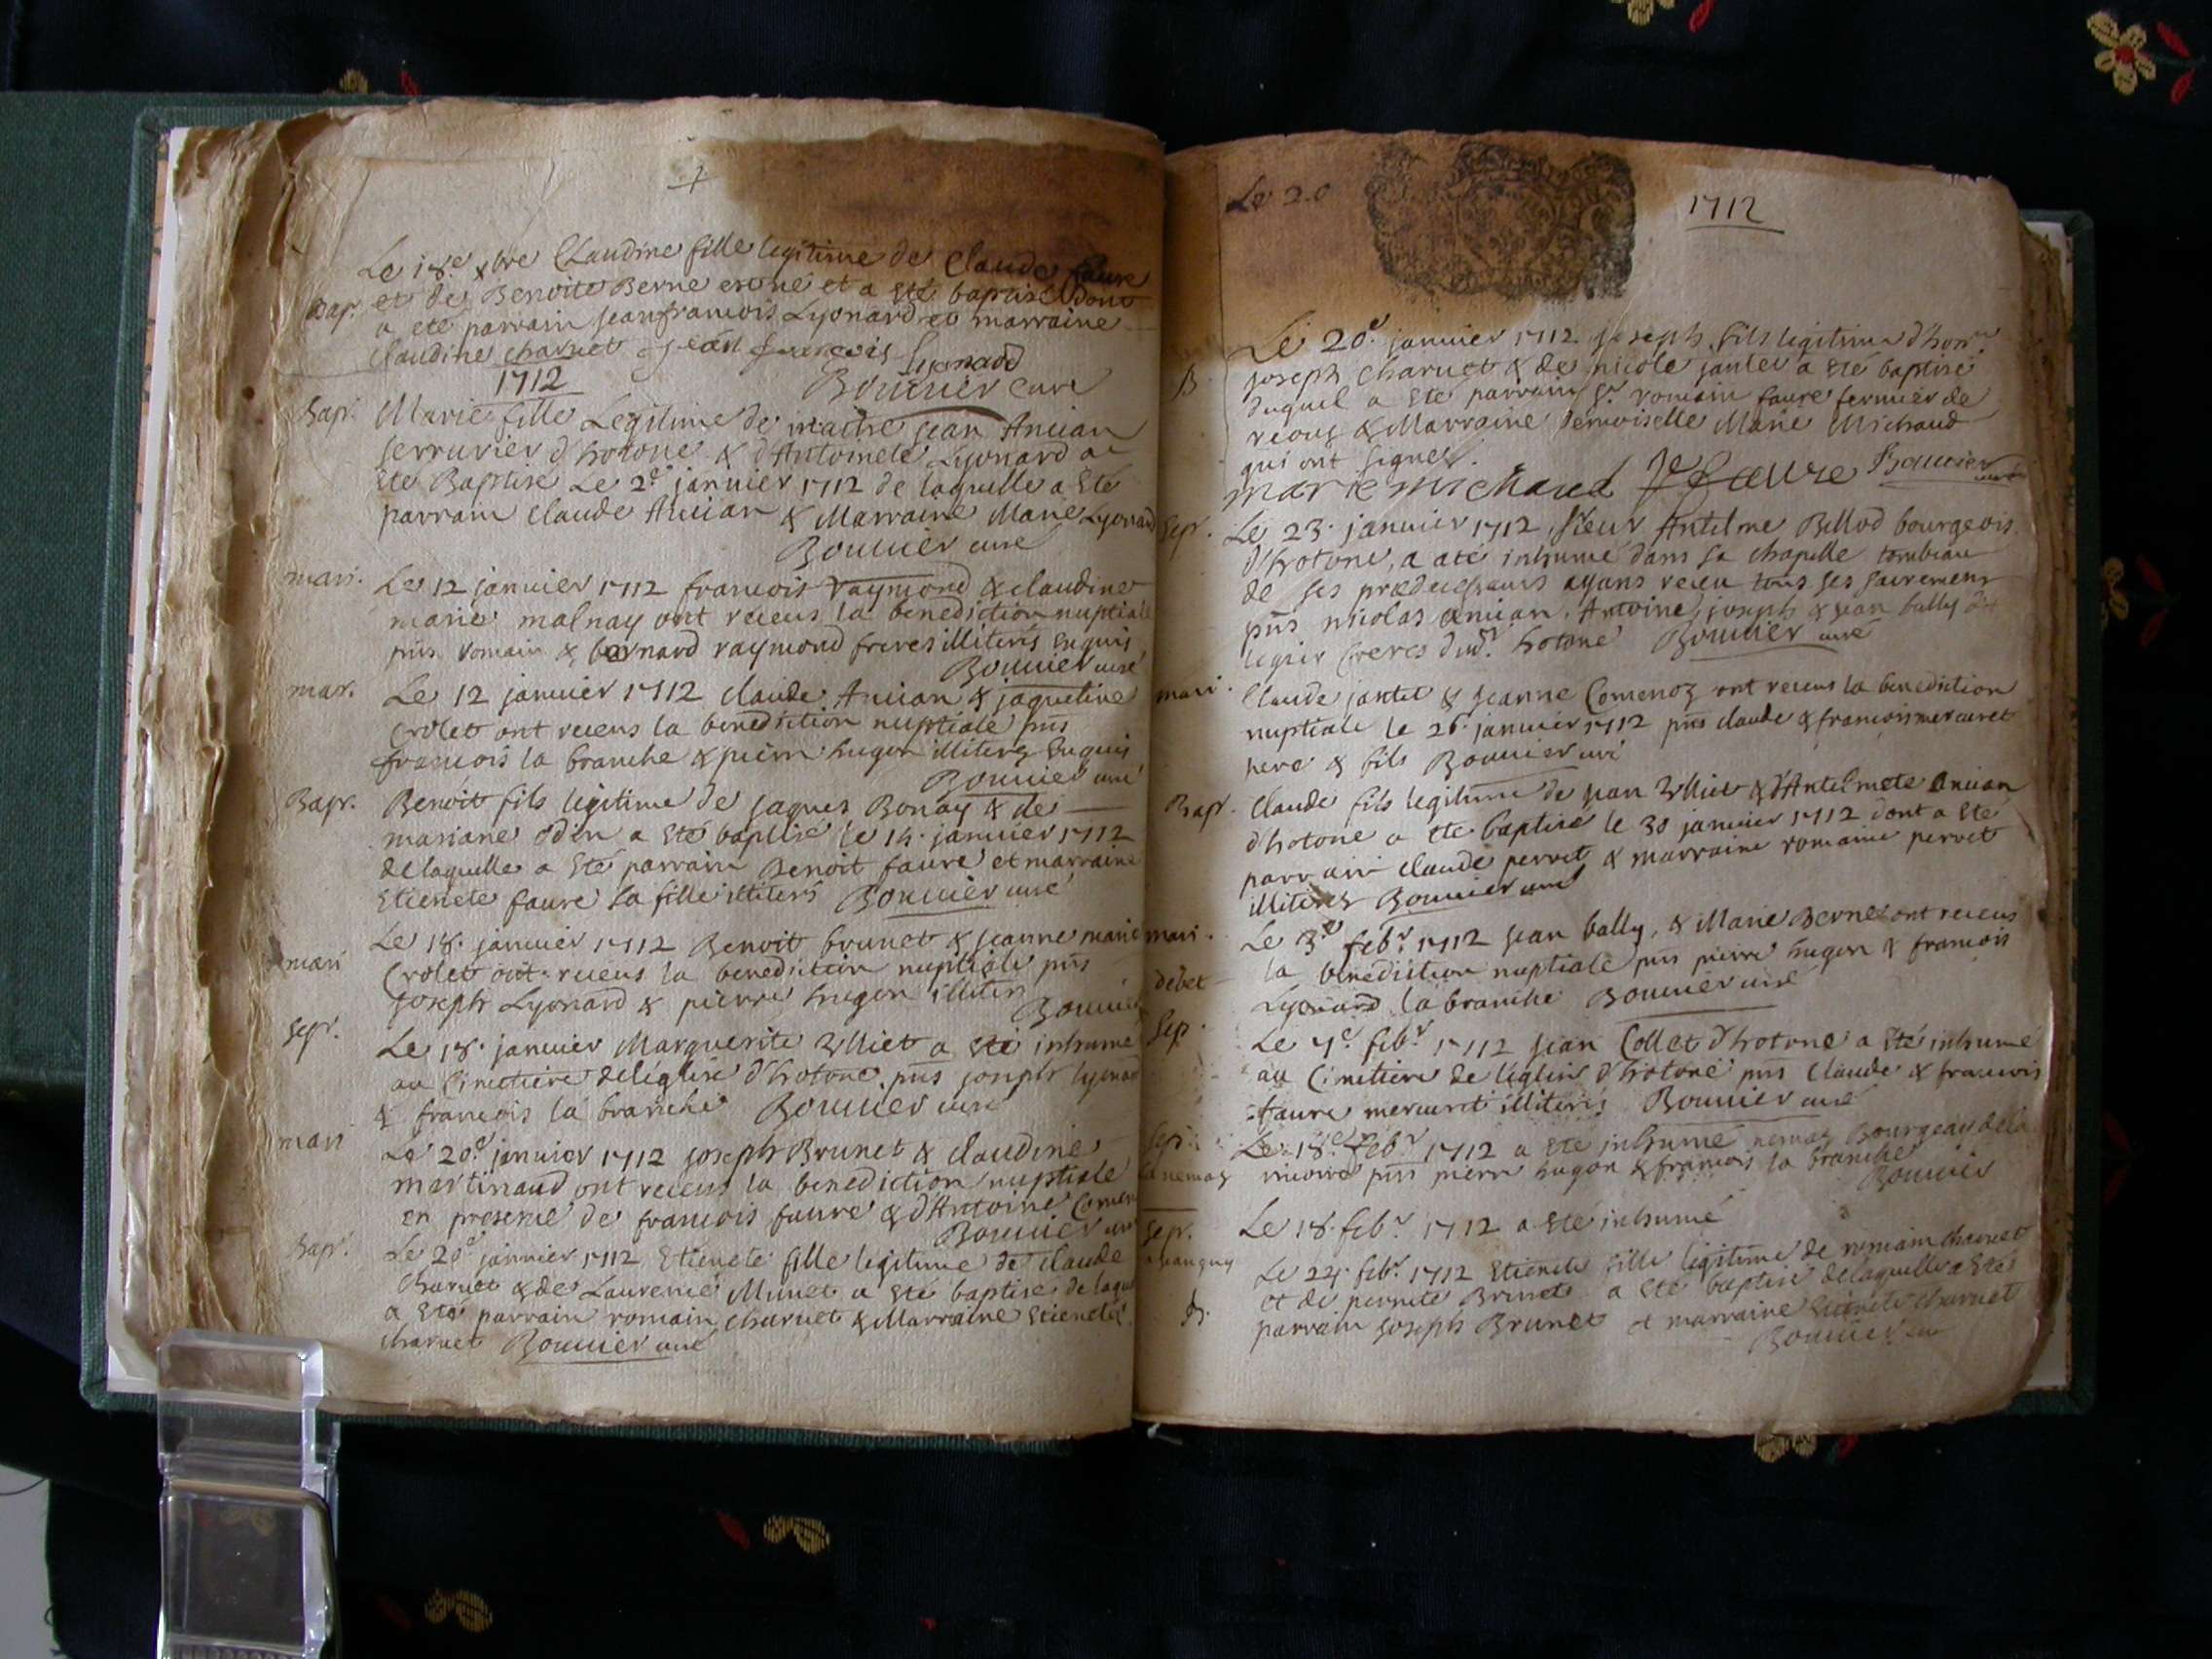 Le 18.e xbre Claudine fille legitime de Claude faure
Bap. et de Benoite Berne est né et a Eté baptisé dont
a eté parrain jeanfrancois Lyonard et marraine
Claudine charuet jean francois Lyonard
1712 Bouuier curé
bap. Marie fille Legitime de maitre jean Ancian
serrurier d'hotone & d'Antoinete Lyonard a
Eté Baptise Le 2e januier 1712 de laquelle a Eté
parrain claude Ancian & Marraine Marie Lyonard
Bouuier curé
mari. Le 12 januier 1712 francois raymond & claudine
marie malnay ont receus la benediction nuptiale
pns romain & bernard raymond freres illiteris Enquis
Bouuier curé
mar. Le 12 januier 1712 claude Ancian & jaqueline
Crolet ont receus la benediction nuptiale pns
francois la branche & pierre hugon illiteres Enquis
Bouuier curé
Bapt. Benoit fils legitime de jaques Bonay & de
mariane odin a Eté baptisé le 14. januier 1712
delaquelle a Eté parrain Benoit faure et marraine
Etienete faure sa fille illiters Bouuier curé
Le 18. januier 1712 Benoit brunet & jeanne marie
mari Crolet ont receus la benediction nuptiale pns
joseph Lyonard & pierre hugon illiters
Bouuier
sep. Le 18. januier Marguerite Julliet a Eté inhumé
au Cimetiere deléglise d'hotone pns joseph lyonard
& francois la branche Bouuier curé
mari Le 20e januier 1712 joseph Brunet & claudine
martinaud ont receus la benediction nuptiale
en presence de francois faure & d'Antoine Comen
Bouuier curé
bap. Le 20e januier 1712 Etienete fille legitime de claude
Charuet & de Laurence Munet a Eté baptisé de laquelle
a Eté parrain romain charuet & Marraine Etienete
charuet Bouuier curé
Le 20
1712
Le 20e. januier 1712 joseph fils legitime d'hon.
B. joseph Charuet & de nicole jantet a Eté baptisé
duquel a Eté parrain Sr. romain faure fermier de
& Marraine Demoiselle Marie Michaud
qui ont signez.
marie michaud faure Bouuier curé
sep. Le 23. januier 1712 Sieur Antelme Billod bourgeois
d'hotone, a eté inhumé dans sa chapelle tombeau
de ses prædecesseurs ayans receu tous ses sacremens
pns nicolas ancian, Antoine, joseph & jean bally dit
freres dud. hotone Bouuier curé
mari. Claude jantet & jeanne Comenoz ont receus la benediction
nuptiale le 26. januier 1712 pns claude & francois mercuret
pere & fils Bouuier curé
Bapt. Claude fils legitime de jean Julliet & d'Antelmete Ancian
d'hotone a Eté baptisé le 30 januier 1712 dont a Eté
parrain Claude perret & marraine romaine perret
illiteres Bouuier curé
mari. Le 3e febr. 1712 jean bally, & Marie Berne ont receus
la benediction nuptiale pns pierre hugon & francois
debet Lyonard la branche Bouuier curé
Sep. Le 7e. febr. 1712 jean Collet d'hotone a Eté inhumé
au Cimetiere de leglise d'hotone pns Claude & francois
faure mercuret illiteris Bouuier curé
sep. Le 18e. febr 1712 a Eté inhumé nemoz Bourgeay dela
a nemoz pns pierre hugon & francois la branche
Bouuier
sep. Le 18. febr 1712 a Eté inhumé
Le 24. febr. 1712 Etienete fille legitime de romain charuet
et de pernete Brunet a Eté baptisé delaquelle a Eté
B. parrain joseph Brunet et marraine Etienete charuet
Bouuier cu